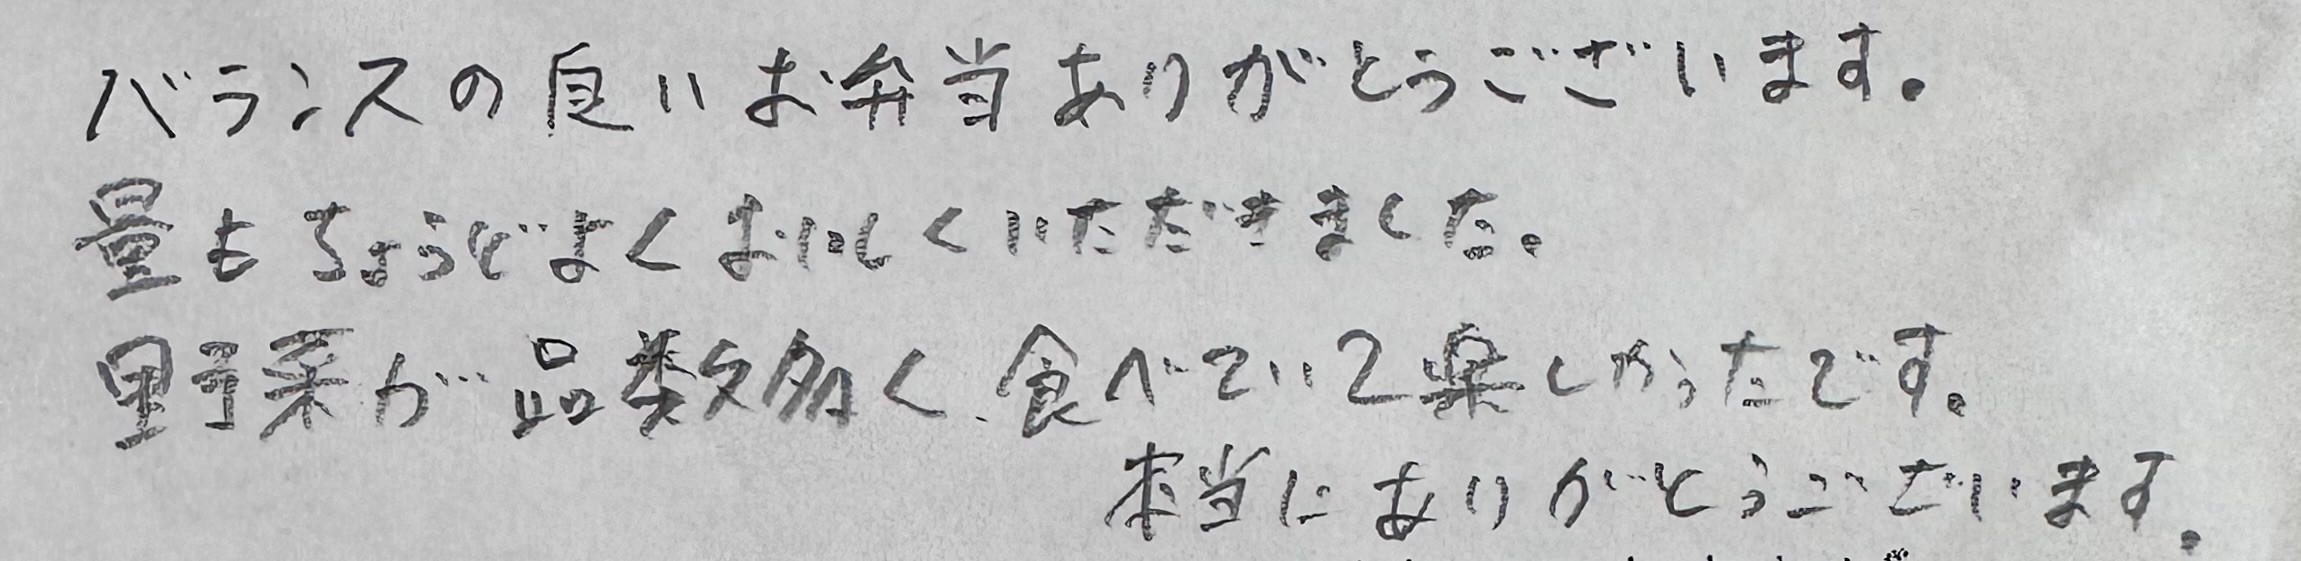 バランスの良いお弁当ありがとうございます。
量もちょうどよくおいしくいただきました。
野菜が品数多く、食べていて楽しかったです。
本当にありがとうございます。